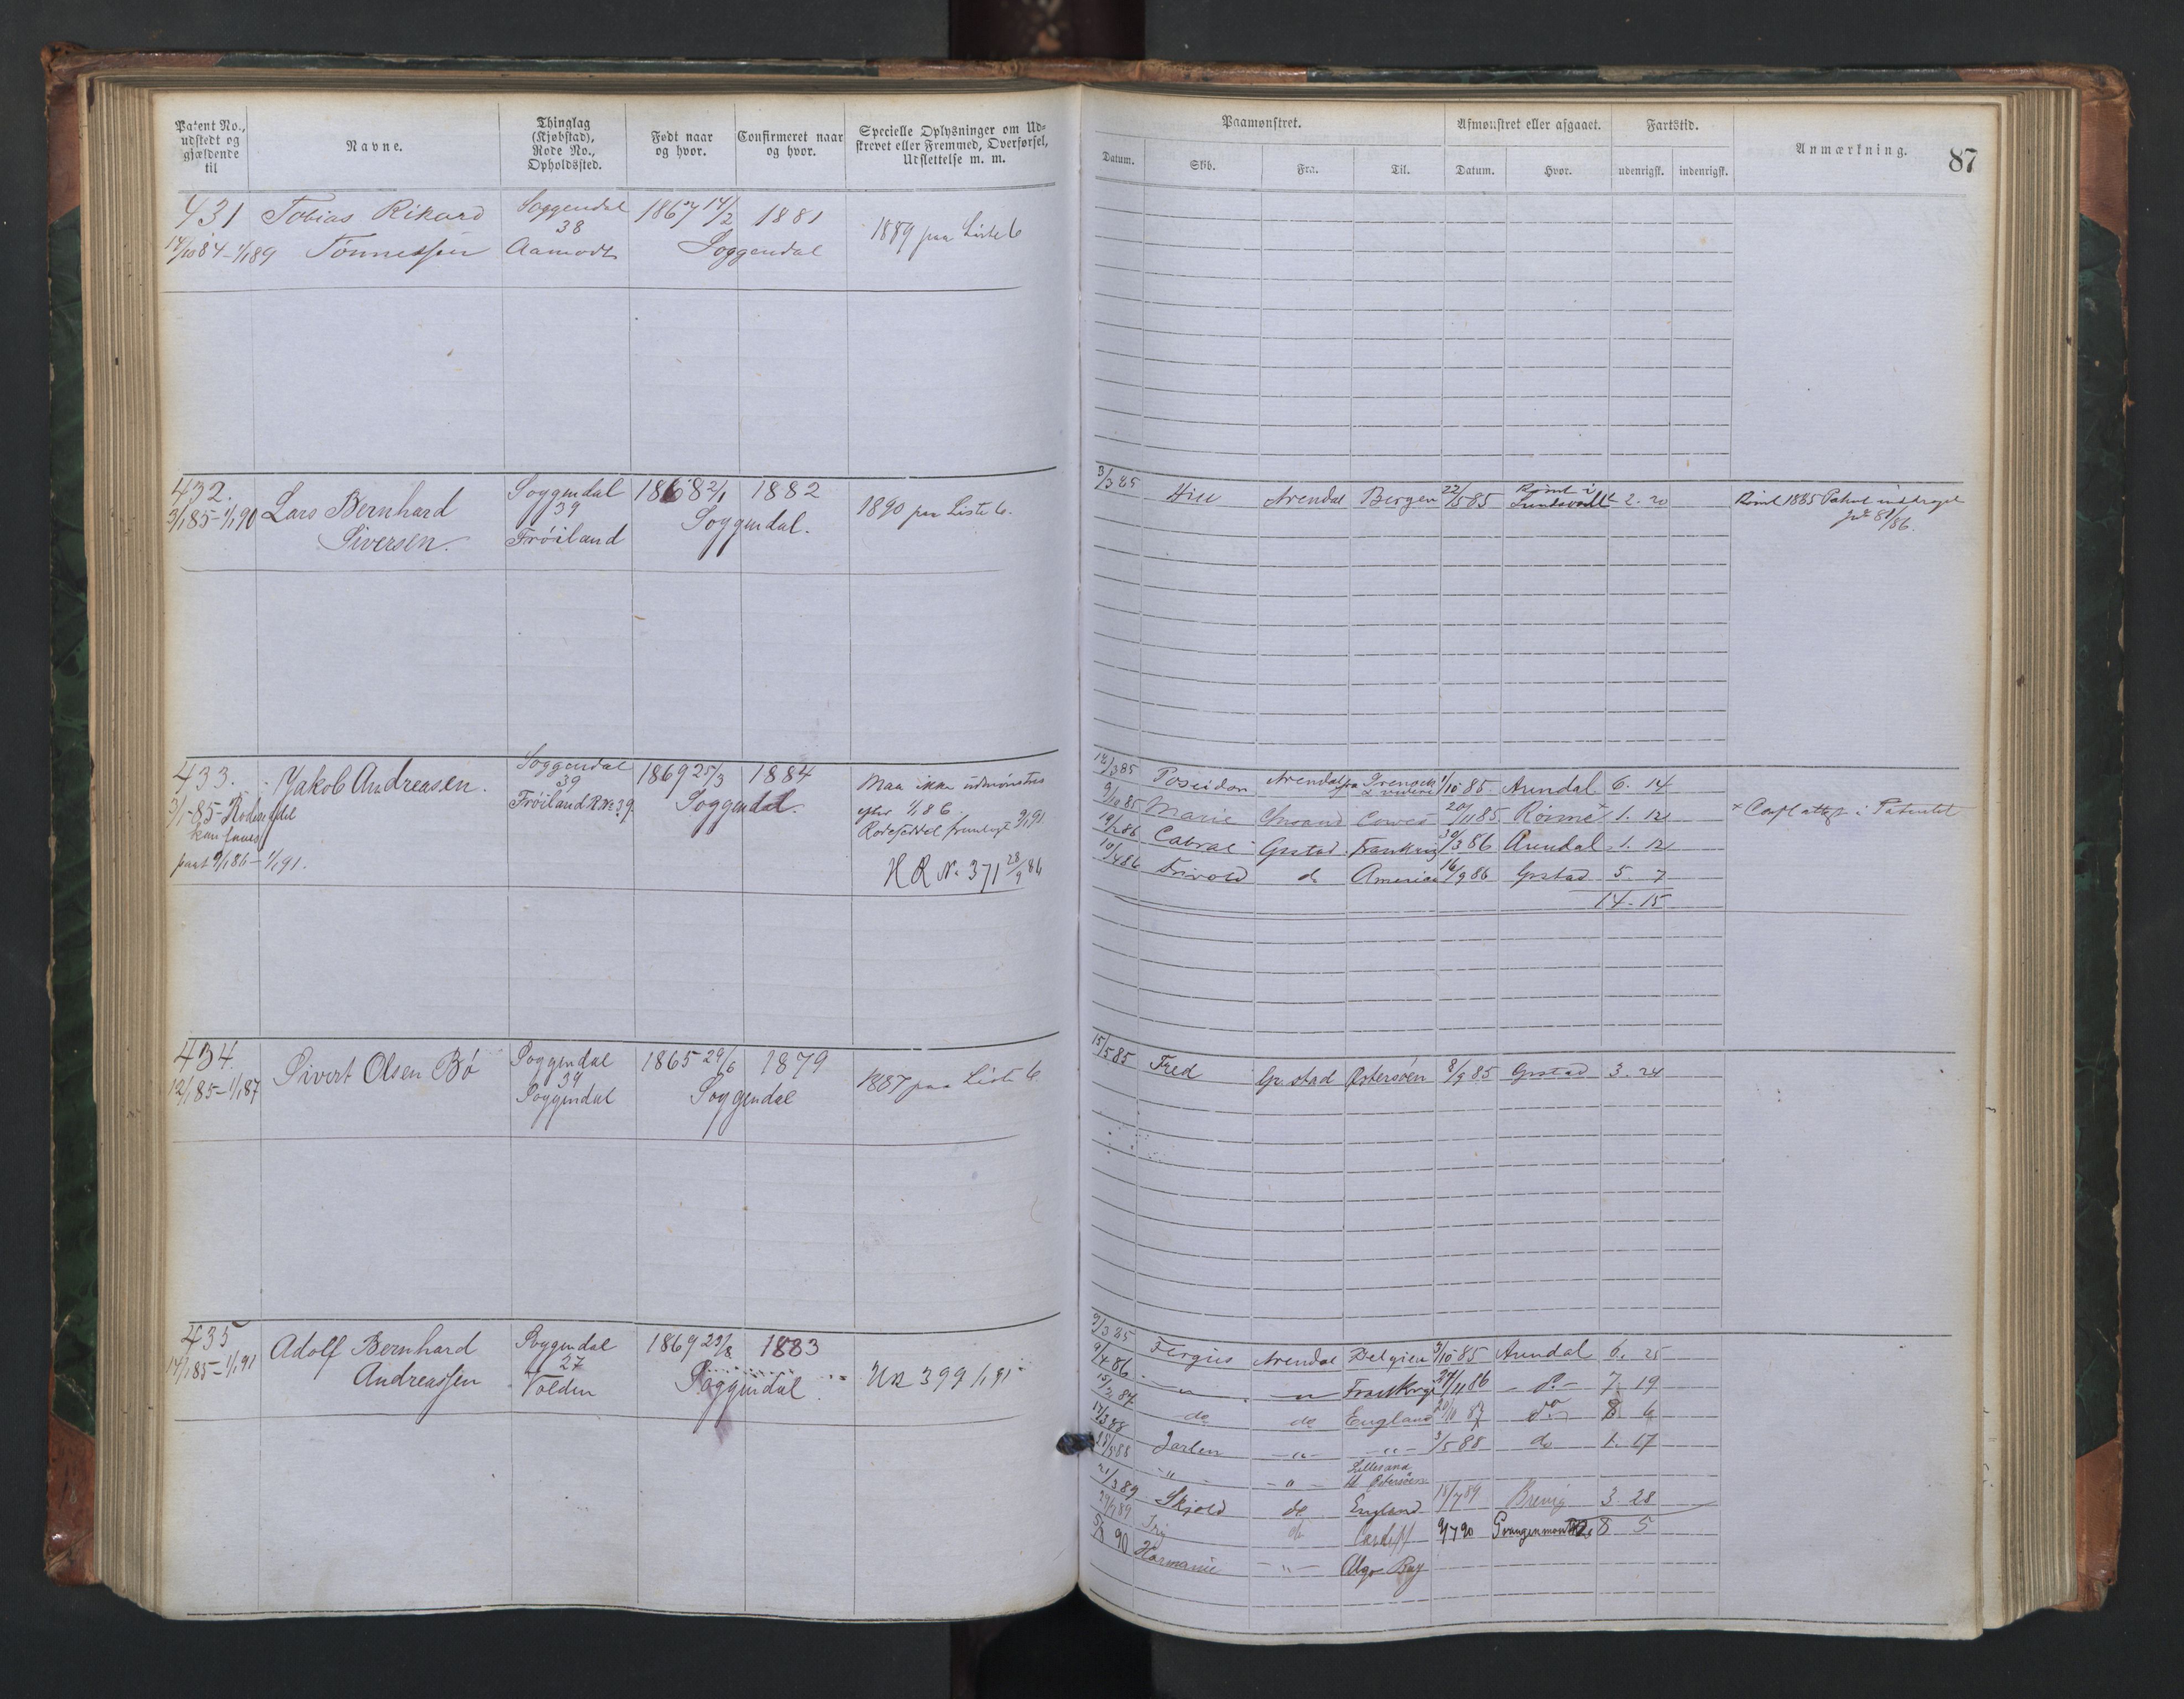 Patent No., udstedt og gjældende til
Navne.
Thinglag (Kjøbstad), Rode No., Opholdssted.
Født naar og hvor.
Confirmeret naar og hvor.
Specielle Oplysninger om Udskrevet eller Fremmed, Overførsel, Udslettelse m. m.
Paamønstret.
Afmønstret eller afgaaet.
Fartstid.
Anmærkning.
87
Datum.
Skib.
Fra.
Til.
Datum.
Hvor.
udenrigsk.
indenrigsk.
431 Tobias Rikard Soggendal 1867 14/2 1881
38 1889 paa Liste 6
14/10 84 – 1/1 89 Tönnessen Aamodt Soggendal
432. Lars Bernhard Soggendal 1868 2/1 1882
3/1 85 – 1/1 90 39 Soggendal. 1890 paa Liste 6.
Siversen. Fröiland
3/3 85 Arendal Bergen 22/5 85 2. 20 Römt 1885
433. Jakob Andreasen. Soggendal 1869 25/3 1884 Maa ikke udmönstres
3/1 - 85 - 39 efter 1/1 86.
Fröiland R No 39. Soggendal.
kan faaes Rodeseddel fremlagt 3/1 91
1/1 86 – 1/1 91. H R No 371 28/9 86
12/3 85 Poseidon Arendal 1/10 85 Arendal 6. 14
9/10 85 Marie Cowes 20/11 85 Römt x 1. 12 x i Patentet
19/2 86 Cabral Grstad Frankrig 30/3 86 Arendal 1. 12
10/4 86 Frivold do Amerika 16/9 86 Grstad 5 7
14 - 15
434. Sivert Olsen Bö Soggendal 1865 29/6 1879
12/1 85 – 1/1 87 39 1887 paa Liste 6
Soggendal Soggendal
15/5 85 Fred Gr. stad Østersöen 8/9 85 Grstad 3. 24
435 Adolf Bernhard Soggendal 1869 29/8 1883
14/1 85 – 1/1 91 27 399 1/1 91
Andreassen Volden Soggendal.
9/3 85 Fergus Arendal Belgien 3/10 85 Arendal 6. 25
9/4 86 – " – " Frankrige 27/11 86 – do – 7. 19
15/2 87 do do England 20/10 87 do 8 6
17/3 88 Jarlen – " – – " – 3/5 88 do 1. 17
25/5 88 – " – – " – Lillesand
til Østersöen
21/3 89 Skjold do England 18/7 89 Brevig 3. 28
29/7 89 do Cardiff 9/7 90 8 5
5/8 90 – " – Algoa Bay